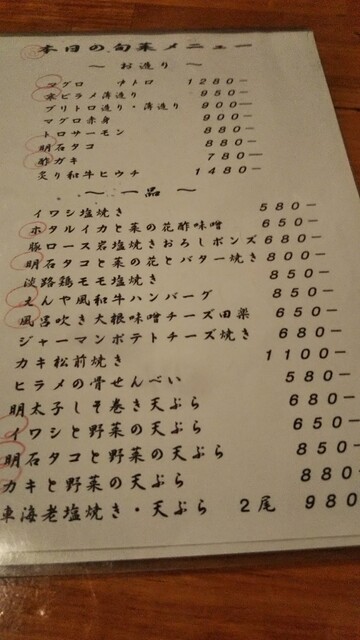 本日の旬菜メニュー
～ お造り ～
マグロ 中トロ 1280ー
寒ビラメ薄造り 950ー
ブリトロ造り・薄造り 900ー
マグロ赤身 900ー
トロサーモン 880ー
明石タコ 880ー
酢ガキ 780ー
炙り和牛ヒウチ 1480ー
～ 一品 ～
イワシ塩焼き 580ー
ホタルイカと菜の花酢味噌 650ー
豚ロース岩塩焼きおろしポンズ 680ー
明石タコと菜の花とバター焼き 800ー
淡路鶏モモ塩焼き 850ー
えんや風和牛ハンバーグ 850ー
風呂吹き大根味噌チーズ田楽 650ー
ジャーマンポテトチーズ焼き 680ー
カキ松前焼き 1100ー
ヒラメの骨せんべい 580ー
明太子しそ巻き天ぷら 680ー
イワシと野菜の天ぷら 650ー
明石タコと野菜の天ぷら 850ー
カキと野菜の天ぷら 880ー
車海老塩焼き・天ぷら 2尾 980